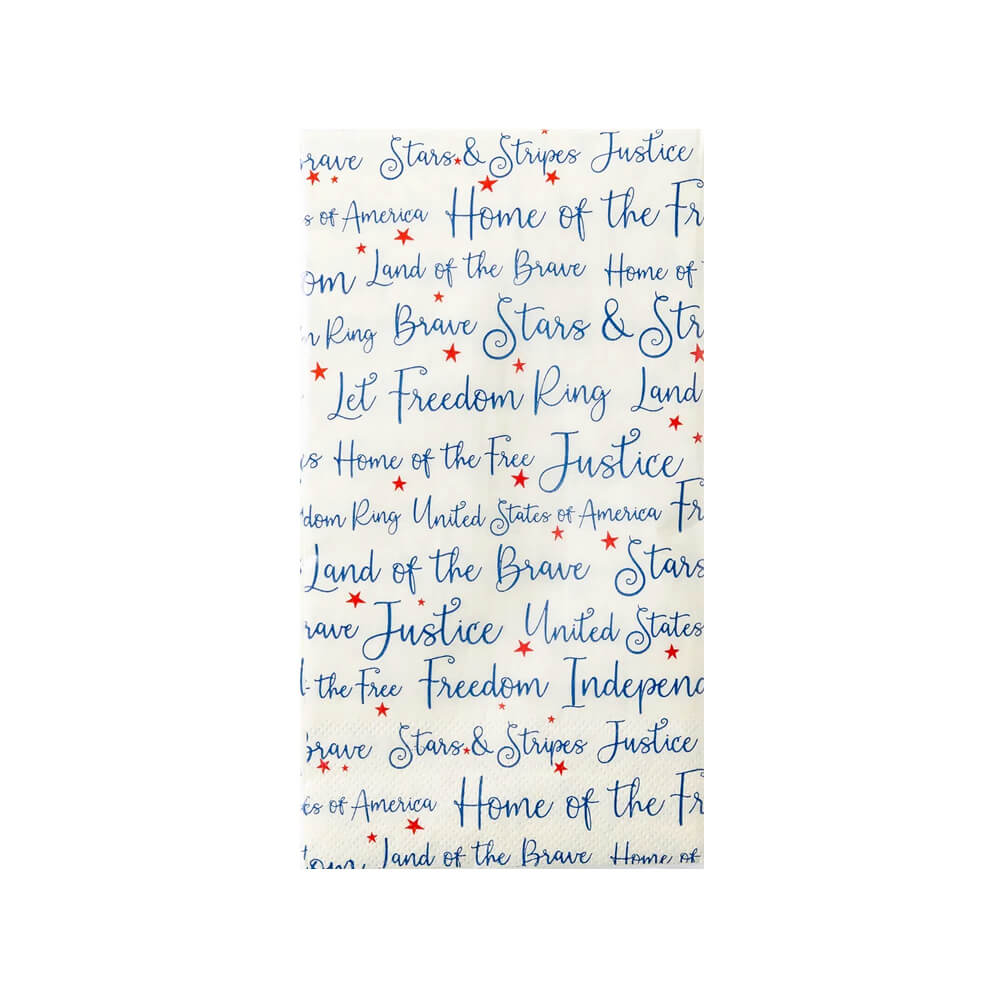 Brave Stars & Stripes Justice
s of America Home of the Fr
om Land of the Brave Home of
n Ring Brave Stars & Str
Let Freedom Ring Land
es Home of the Free Justice
dom Ring United States of America Fr
Land of the Brave Stars
rave Justice United States
the Free Freedom Independ
Brave Stars & Stripes Justice
es of America Home of the Fr
om Land of the Brave Home of